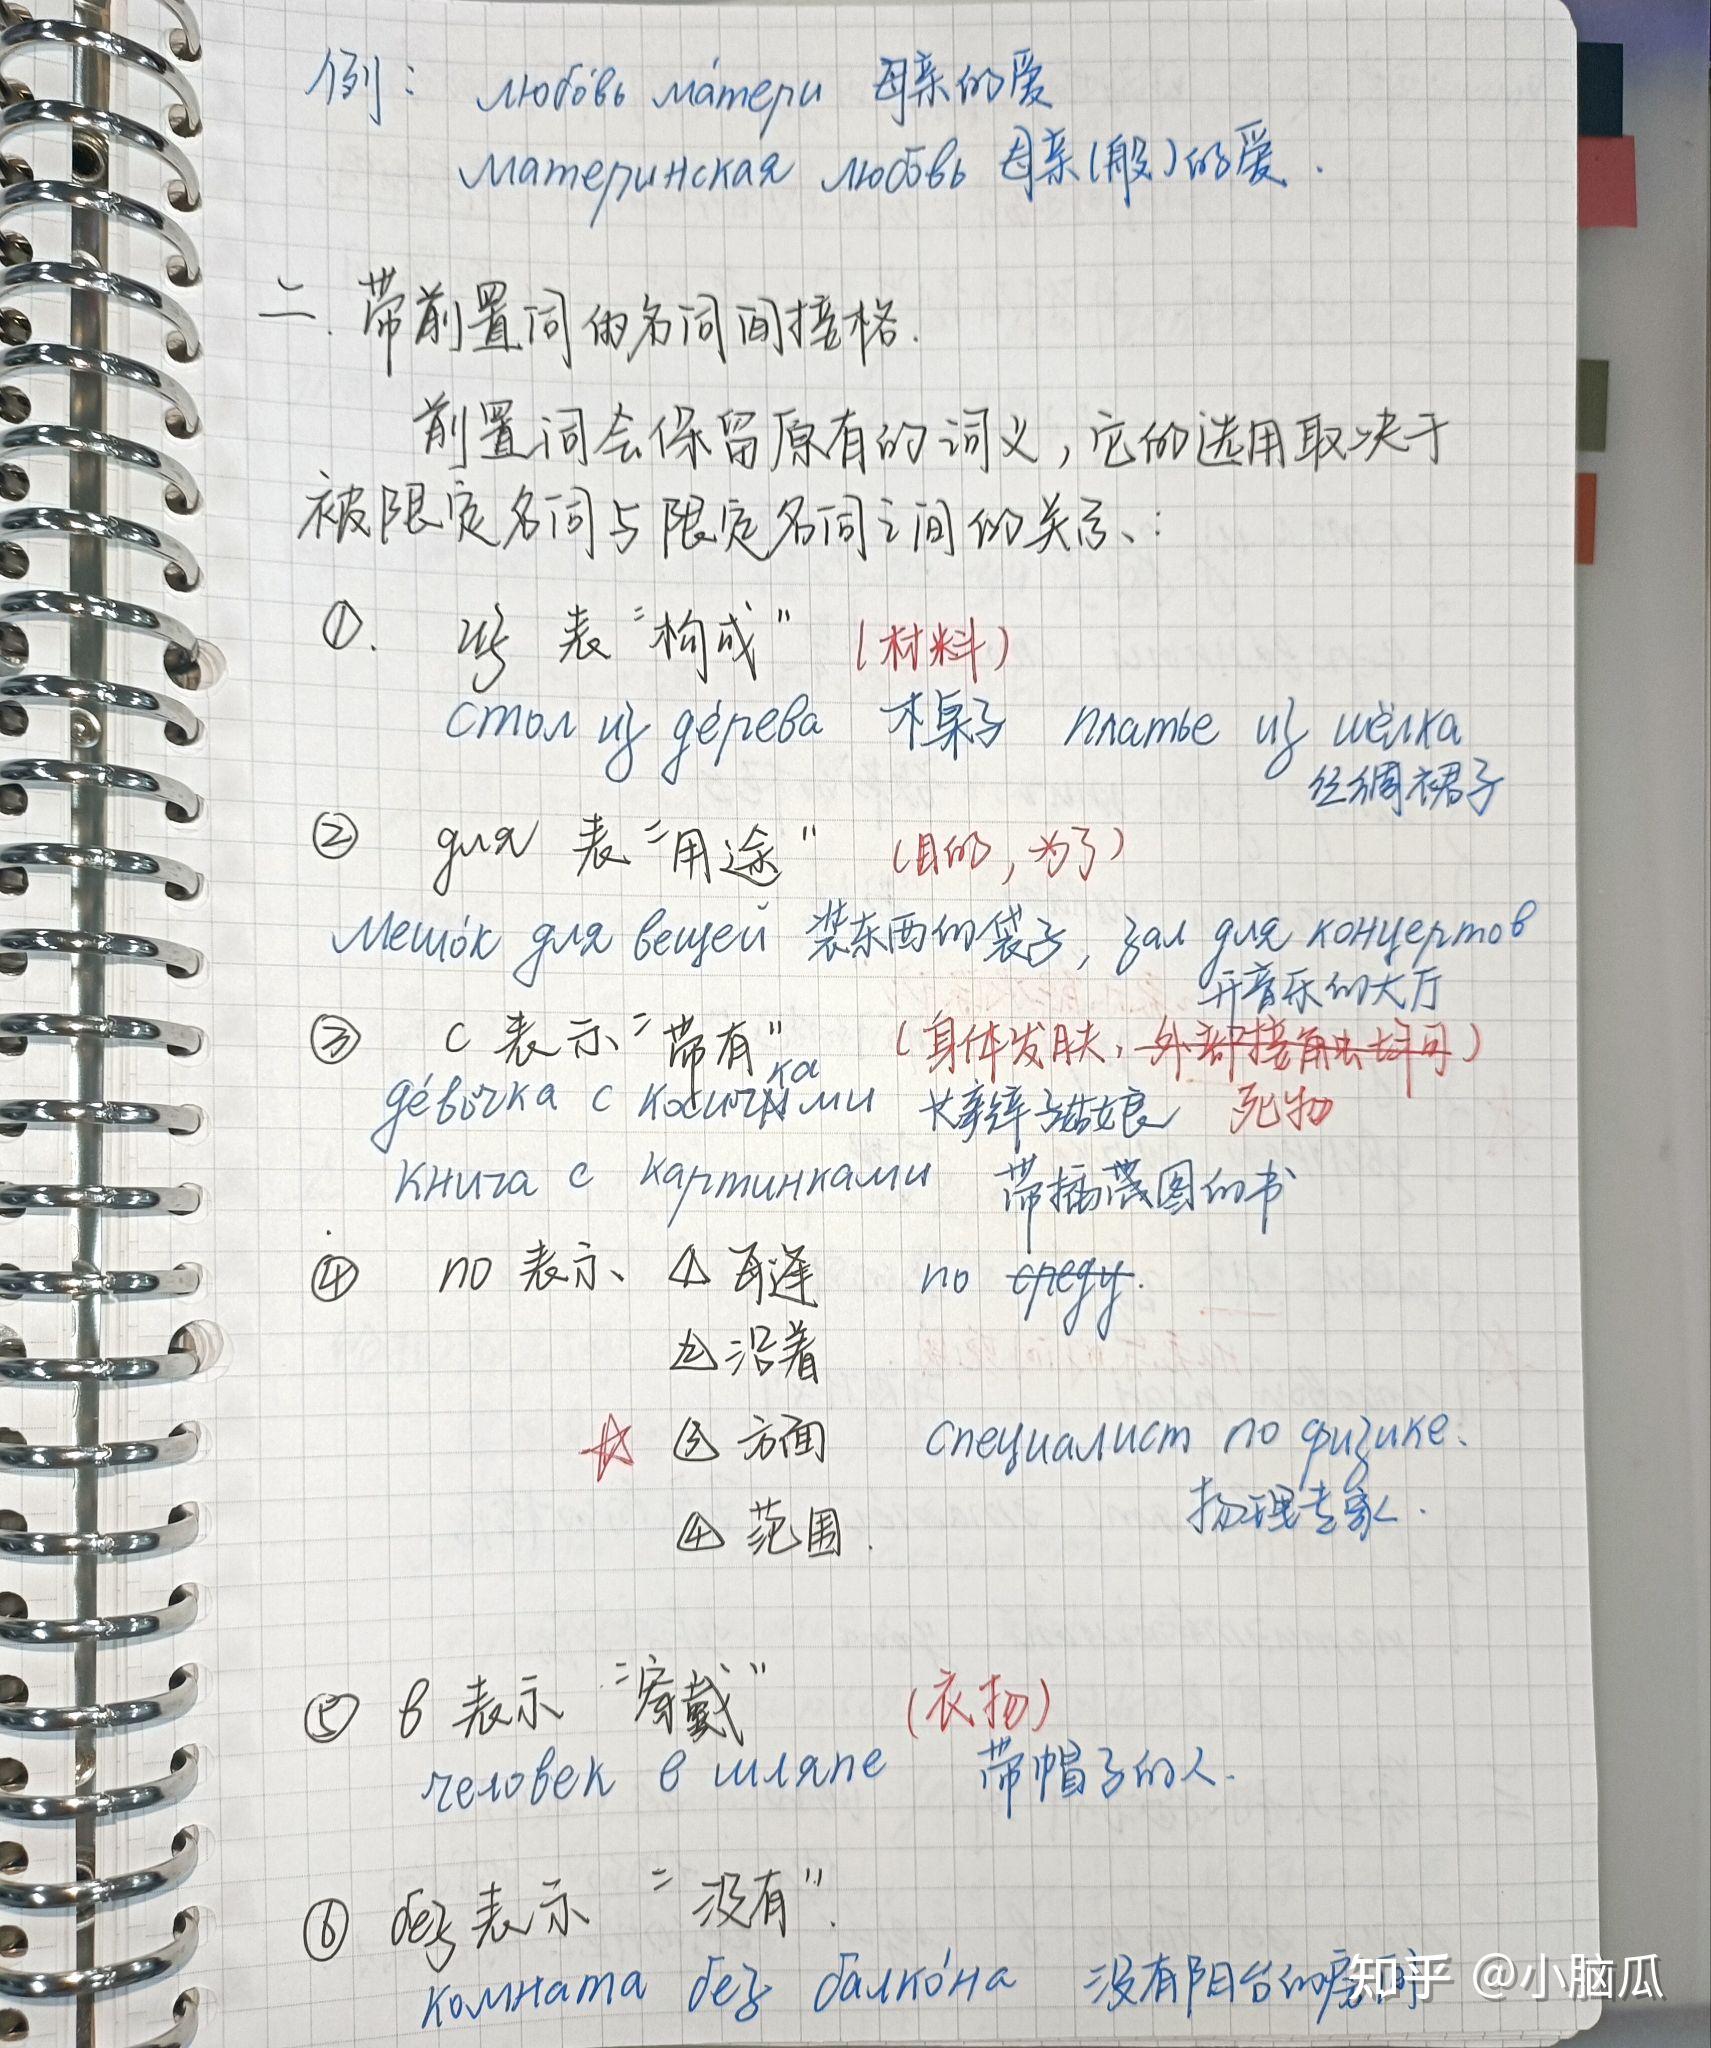 例： любо́вь ма́тери 母亲的爱
материнская любовь 母亲(般)的爱.
二. 带前置词的名词间接格.
前置词会保留原有的词义，它的选用取决于
被限定名词与限定名词之间的关系、:
①. из 表“构成” (材料)
стол из де́рева 木桌子 платье из шёлка
丝绸裙子
② для 表“用途” (目的，为了)
мешо́к для вещей 装东西的袋子, зал для концертов
开音乐的大厅
③ с 表示“带有” (身体发肤,
де́вочка с косичками 长辫子姑娘 死物
книга с картинками 带插图的书
④ по 表示、 ① 每逢 по среду.
② 沿着
☆ ③ 方面 специалист по физике.
物理专家.
④ 范围.
⑤ в 表示“穿戴” (衣物)
человек в шляпе 带帽子的人.
⑥ без 表示“没有”.
комната без балко́на 没有阳台的房间
知乎 @小脑瓜